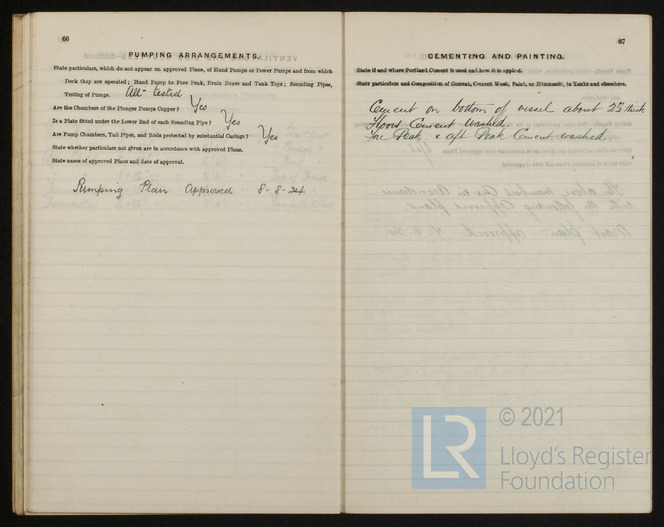 66
PUMPING ARRANGEMENTS.
State particulars, which do not appear on approved Plans, of Hand Pumps or Power Pumps and from which
Deck they are operated; Hand Pump to Fore Peak, Drain Doors and Tank Tops; Sounding Pipes,
Testing of Pumps. All tested
Are the Chambers of the Plunger Pumps Copper? Yes
Is a Plate fitted under the Lower End of each Sounding Pipe? Yes
Are Pump Chambers, Tail Pipes, and Rods protected by substantial Casings? Yes
State whether particulars not given are in accordance with approved Plans.
State name of approved Plans and date of approval.
Pumping Plan Approved 8-8-24
67
CEMENTING AND PAINTING.
State if and where Portland Cement is used and how it is applied.
State particulars and Composition of Cement, Cement Wash, Paint, or Bitumastic, in Tanks and elsewhere.
Cement on bottom of vessel about 2" thick
Floors Cement Washed.
Fore Peak & aft Peak Cement washed
LR
© 2021
Lloyd's Register
Foundation